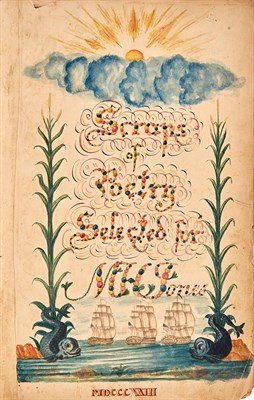 Scraps
of
Poetry
Selected for
Jones
MDCCCXXIII